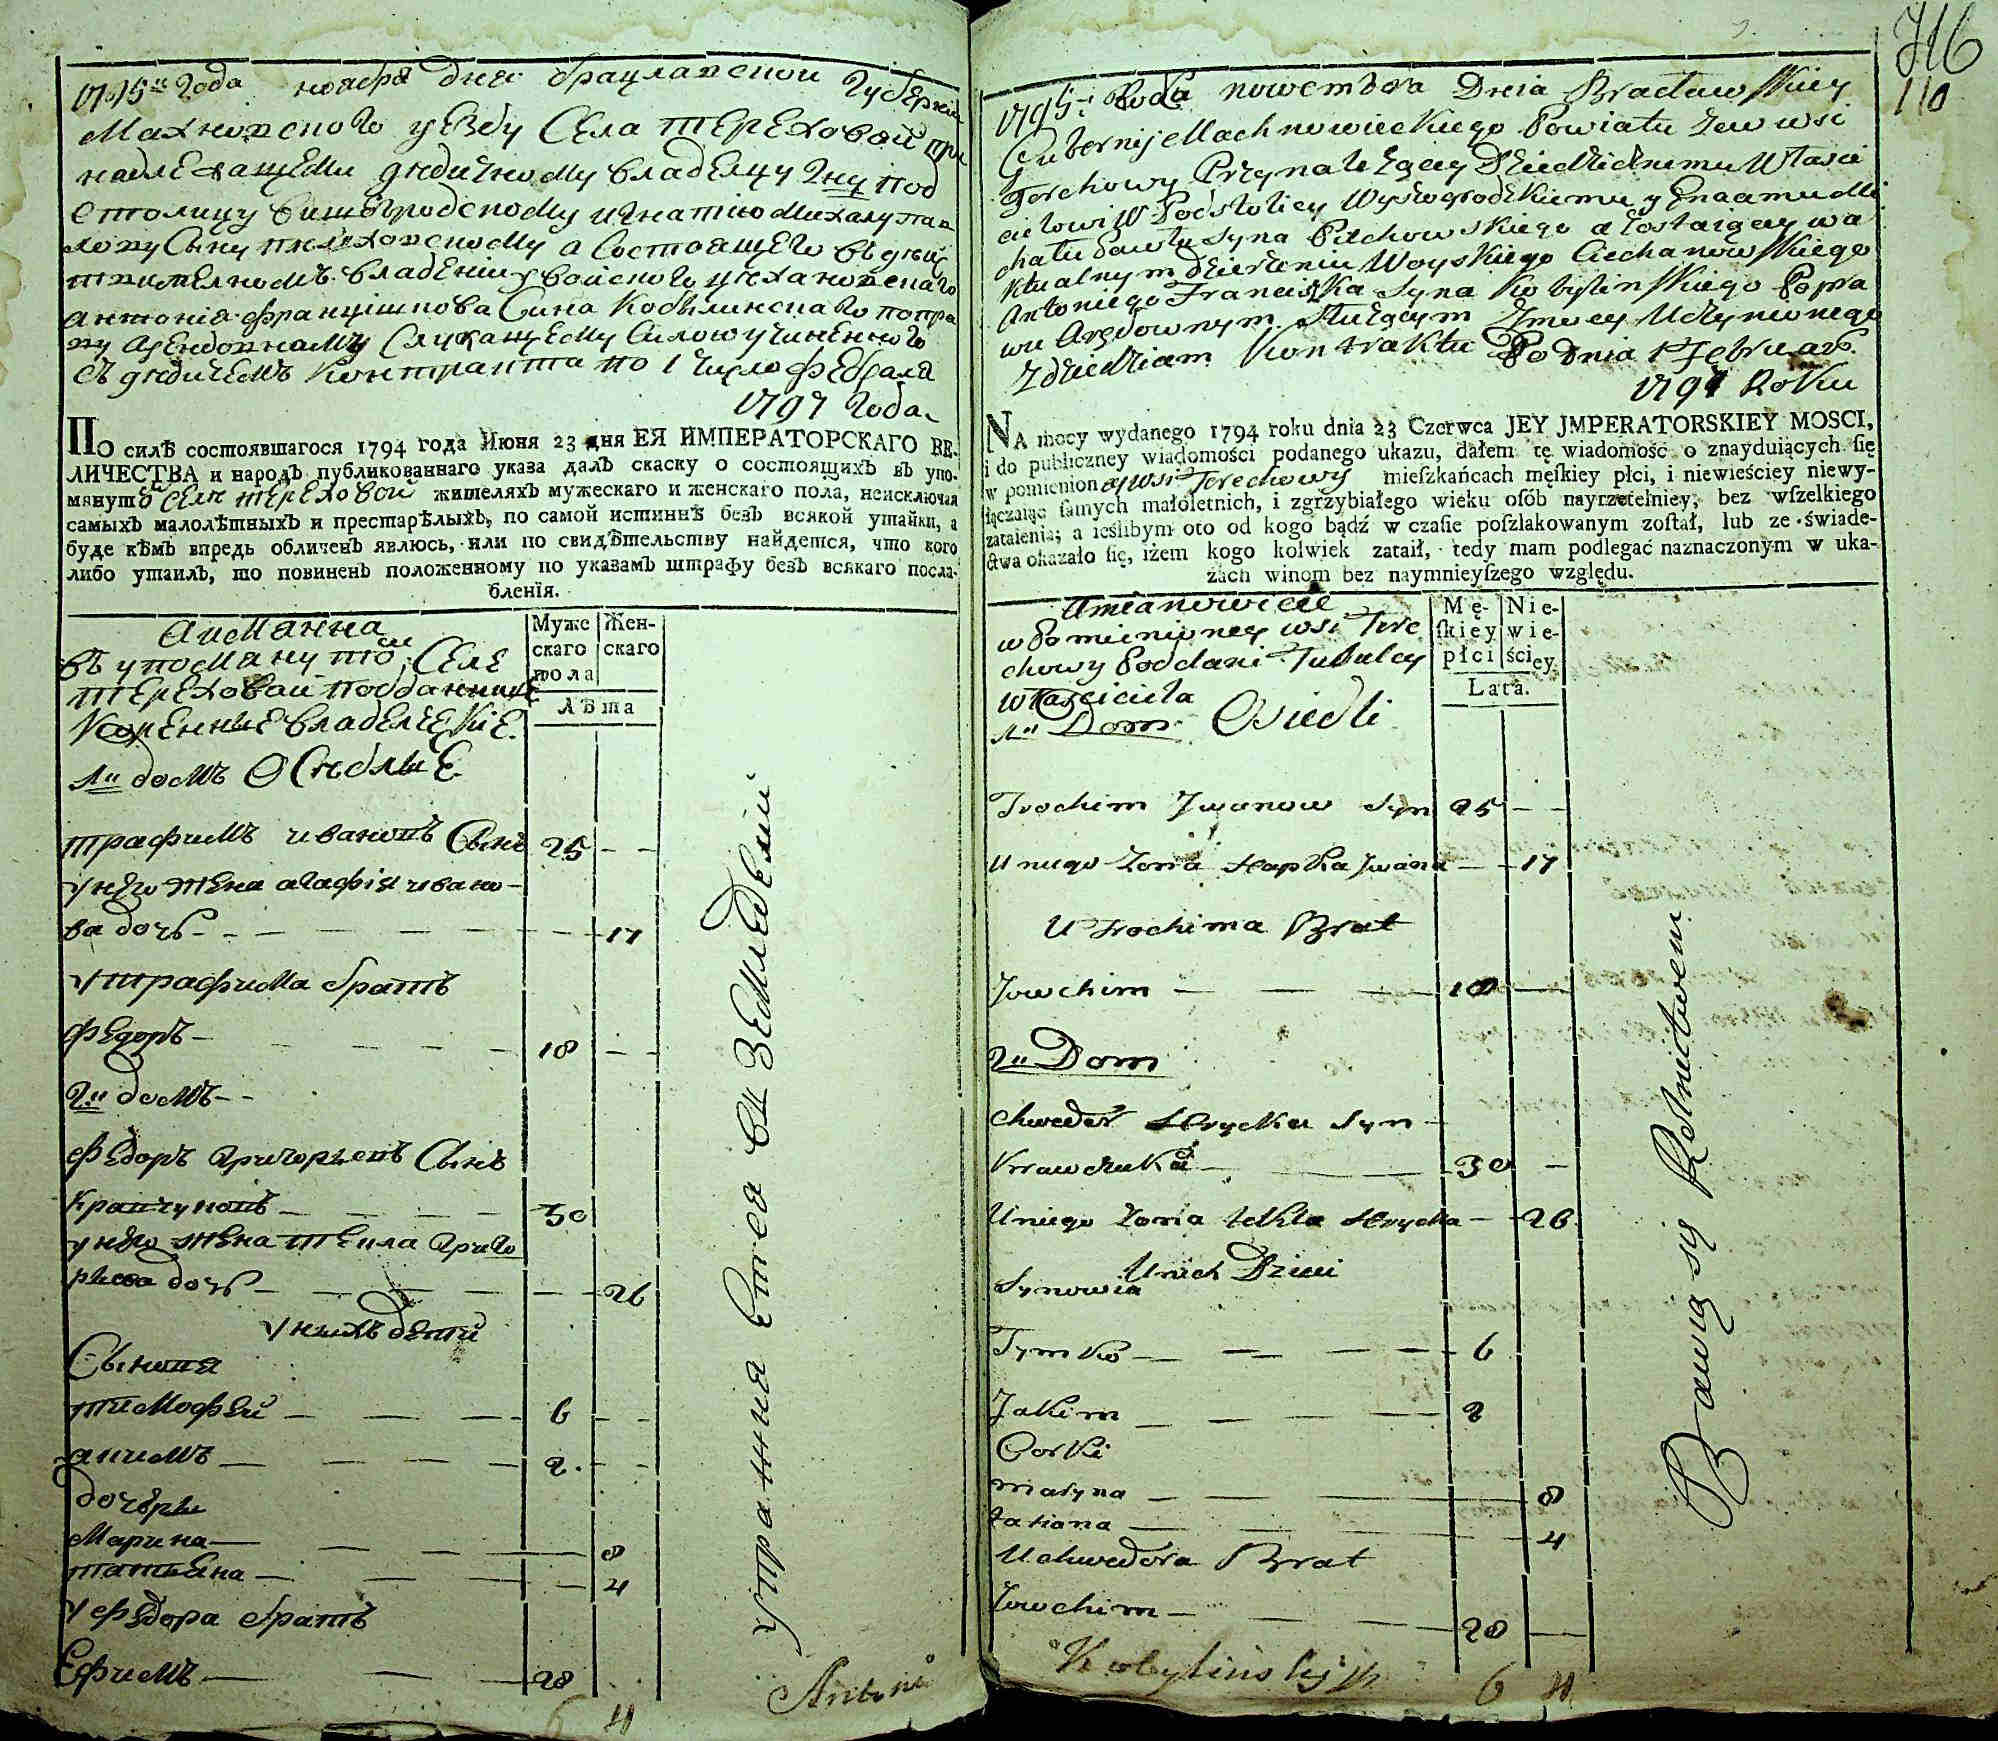 1795го года ноября дня Брацлавской губернии
Махновского уезду Села Терехова
надлежащему дедичному владелцу под
столицу вишегродскому игнатию михалу пав
лову сыну пилховскому а состоящего в действ
вителномъ владении войского цехановского
антония францишкова сина Кобылинского по пра
ву арендовному служащему силою учиненного
съ дедичемъ контракта по 1 число февраля
1797 года
По силѣ состоявшагося 1794 года Июня 23 дня ЕЯ ИМПЕРАТОРСКАГО ВЕ-
ЛИЧЕСТВА и народъ публикованнаго указа далъ скаску о состоящихъ въ упо-
мянутой селе Тереховой жителяхъ мужескаго и женскаго пола, неисключая
самыхъ малолѣтныхъ и престарѣлыхъ, по самой истиннѣ безъ всякой утайки, а
буде кѣмъ впредь обличенъ явлюсь, или по свидѣтельству найдется, что кого
либо утаилъ, то повиненъ положенному по указамъ штрафу безъ всякаго посла-
бленія.
Аимянна
въ упомянутой Селе
Тереховой подданние
коренние владелческие
1й домъ Оседлые
Муже
скаго
пола
Жен-
скаго
Лѣта
трафимъ ивановъ Сынъ 25
у него жена агафия ивано-
ва дочь 17
у трафима братъ
Федоръ 18
2й домъ
Федоръ григорьевъ Сынъ
кравчуковъ 30
у него жена текла григо
рьева дочь 26
у нихъ дети
Сыновя
тимофей 6
акимъ 2
дочери
марина 8
татьяна 4
у федора братъ
Ефимъ 28
6 4
Antoni
716
110
1795 Roku nowembra Dnia Bracławskiey
Gubernij Machnowieckiego Powiatu ze wsi
Terchowy Przynależącey Dziedzicznemu Właści
cielowi W. Podstolicy Wyszogrodzkiemu Ignacemu Mi
chału Pawła Syna Pilchowskiego a zostaiącey w a
ktualnym dzierżeniu Woyskiego Ciechanowskiego
Antoniego Franciszka Syna Kobylinskiego Popra
wu Arędownym służącym z mocy Uczynionego
z dziedzicem Kontraktu Po Dnia 1 Februar.
1797 Roku
NA mocy wydanego 1794 roku dnia 23 Czerwca JEY JMPERATORSKIEY MOSCI,
i do publiczney wiadomości podanego ukazu, dałem tę wiadomość o znayduiących się
w pomienioney wsi Terechowy mieſzkańcach męſkiey płci, i niewieściey niewy-
łączaiąc ſamych małoletnich, i zgrzybiałego wieku oſób nayrzetelniey, bez wſzelkiego
zataienia; a ieślibym oto od kogo bądź w czaſie poſzlakowanym zoſtał, lub ze świade-
ctwa okazało ſię, iżem kogo kolwiek zataił, tedy mam podlegać naznaczonym w uka-
zach winom bez naymnieyſzego względu.
Amianowicie
w Pomienioney wsi Tere
chowy Poddani Tutulcy
właściciela
1й Dom Osiedli
Mę-
ſkiey
płci
Nie-
wie-
ściey
Lata.
Trochim Jwanow Syn 25
U niego żona Hapka Jwana 17
U Trochima Brat
Jowchim 18
2й Dom
Chweder Hrycka Syn
Krawczuka 30
U niego żona Tekla Hrycka 26
U nich Dzieci
Synowia
Tymko 6
Jakim 2
Corki
Maryna 8
Tatiana 4
U Chwedora Brat
Jowchim 28
Kobylinskj
6 4
Упражнения Есть въ Земледелии
Bawią się Rolnictwem